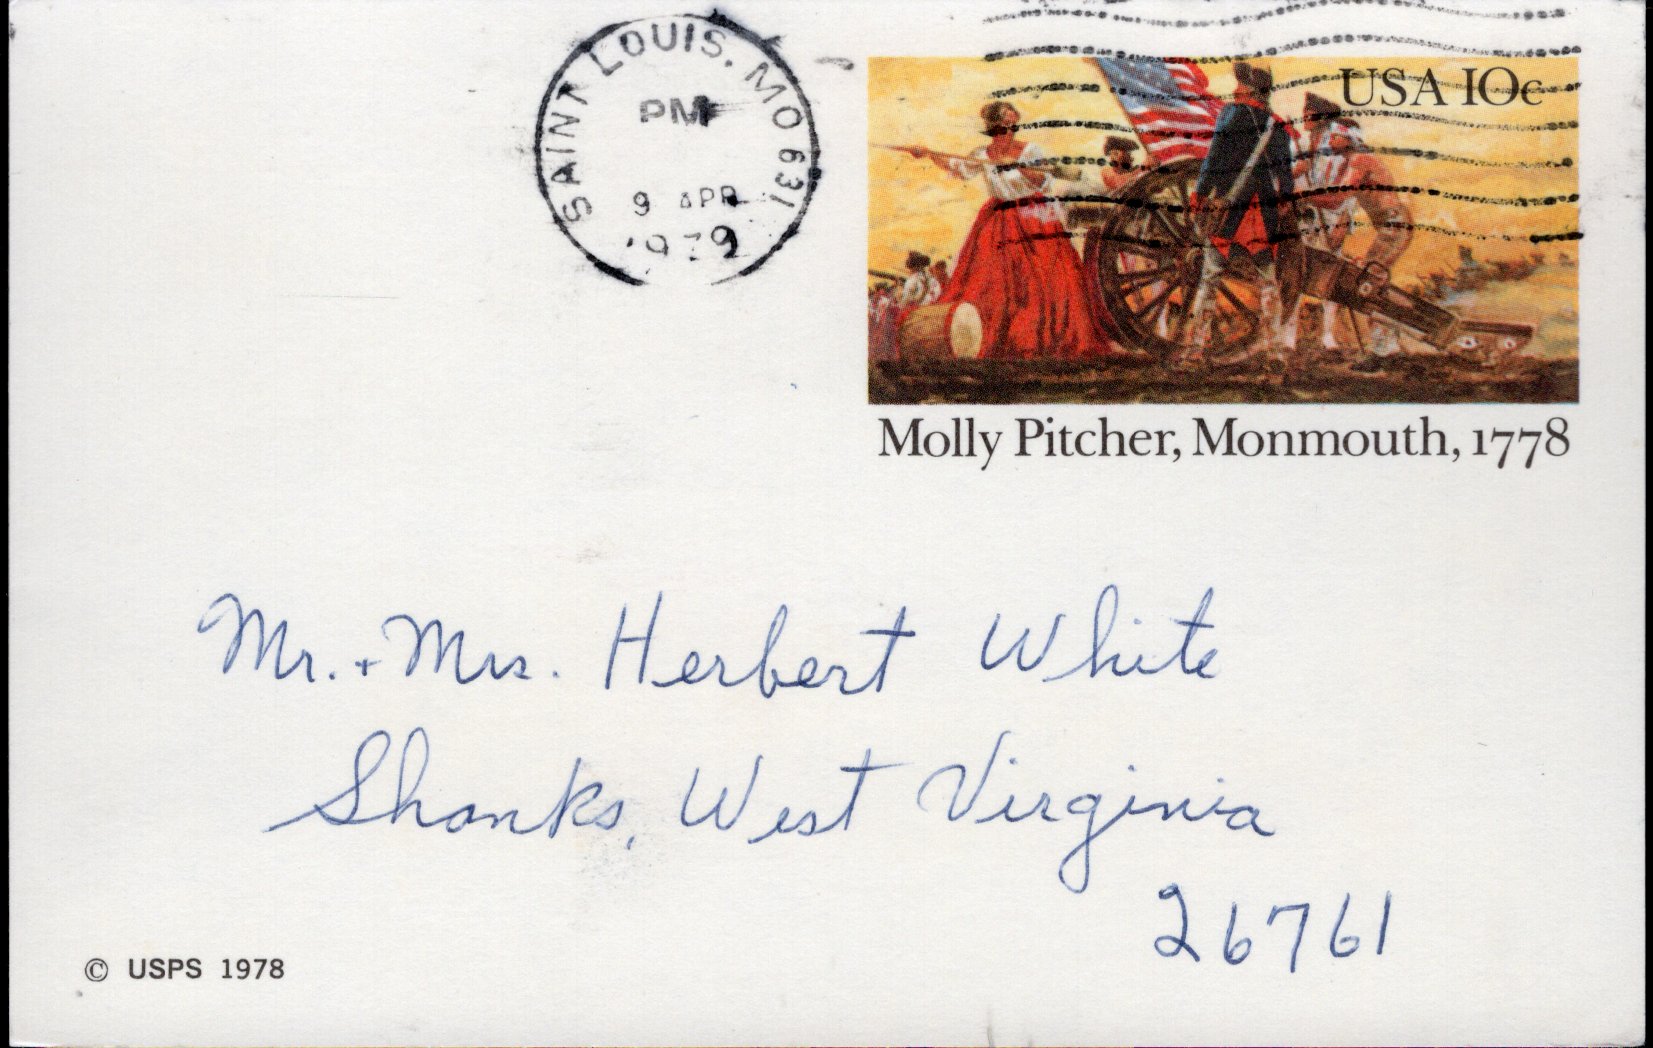 SAINT LOUIS, MO 631
PM
9 APR
1979
USA 10c
Molly Pitcher, Monmouth, 1778
Mr. + Mrs. Herbert White
Shanks, West Virginia
26761
© USPS 1978